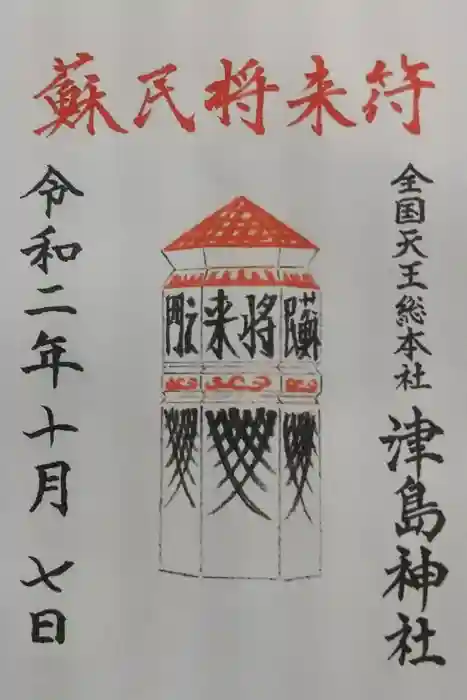 蘇民将来符
全国天王総本社 津島神社
蘇民将来之門
令和二年十月七日